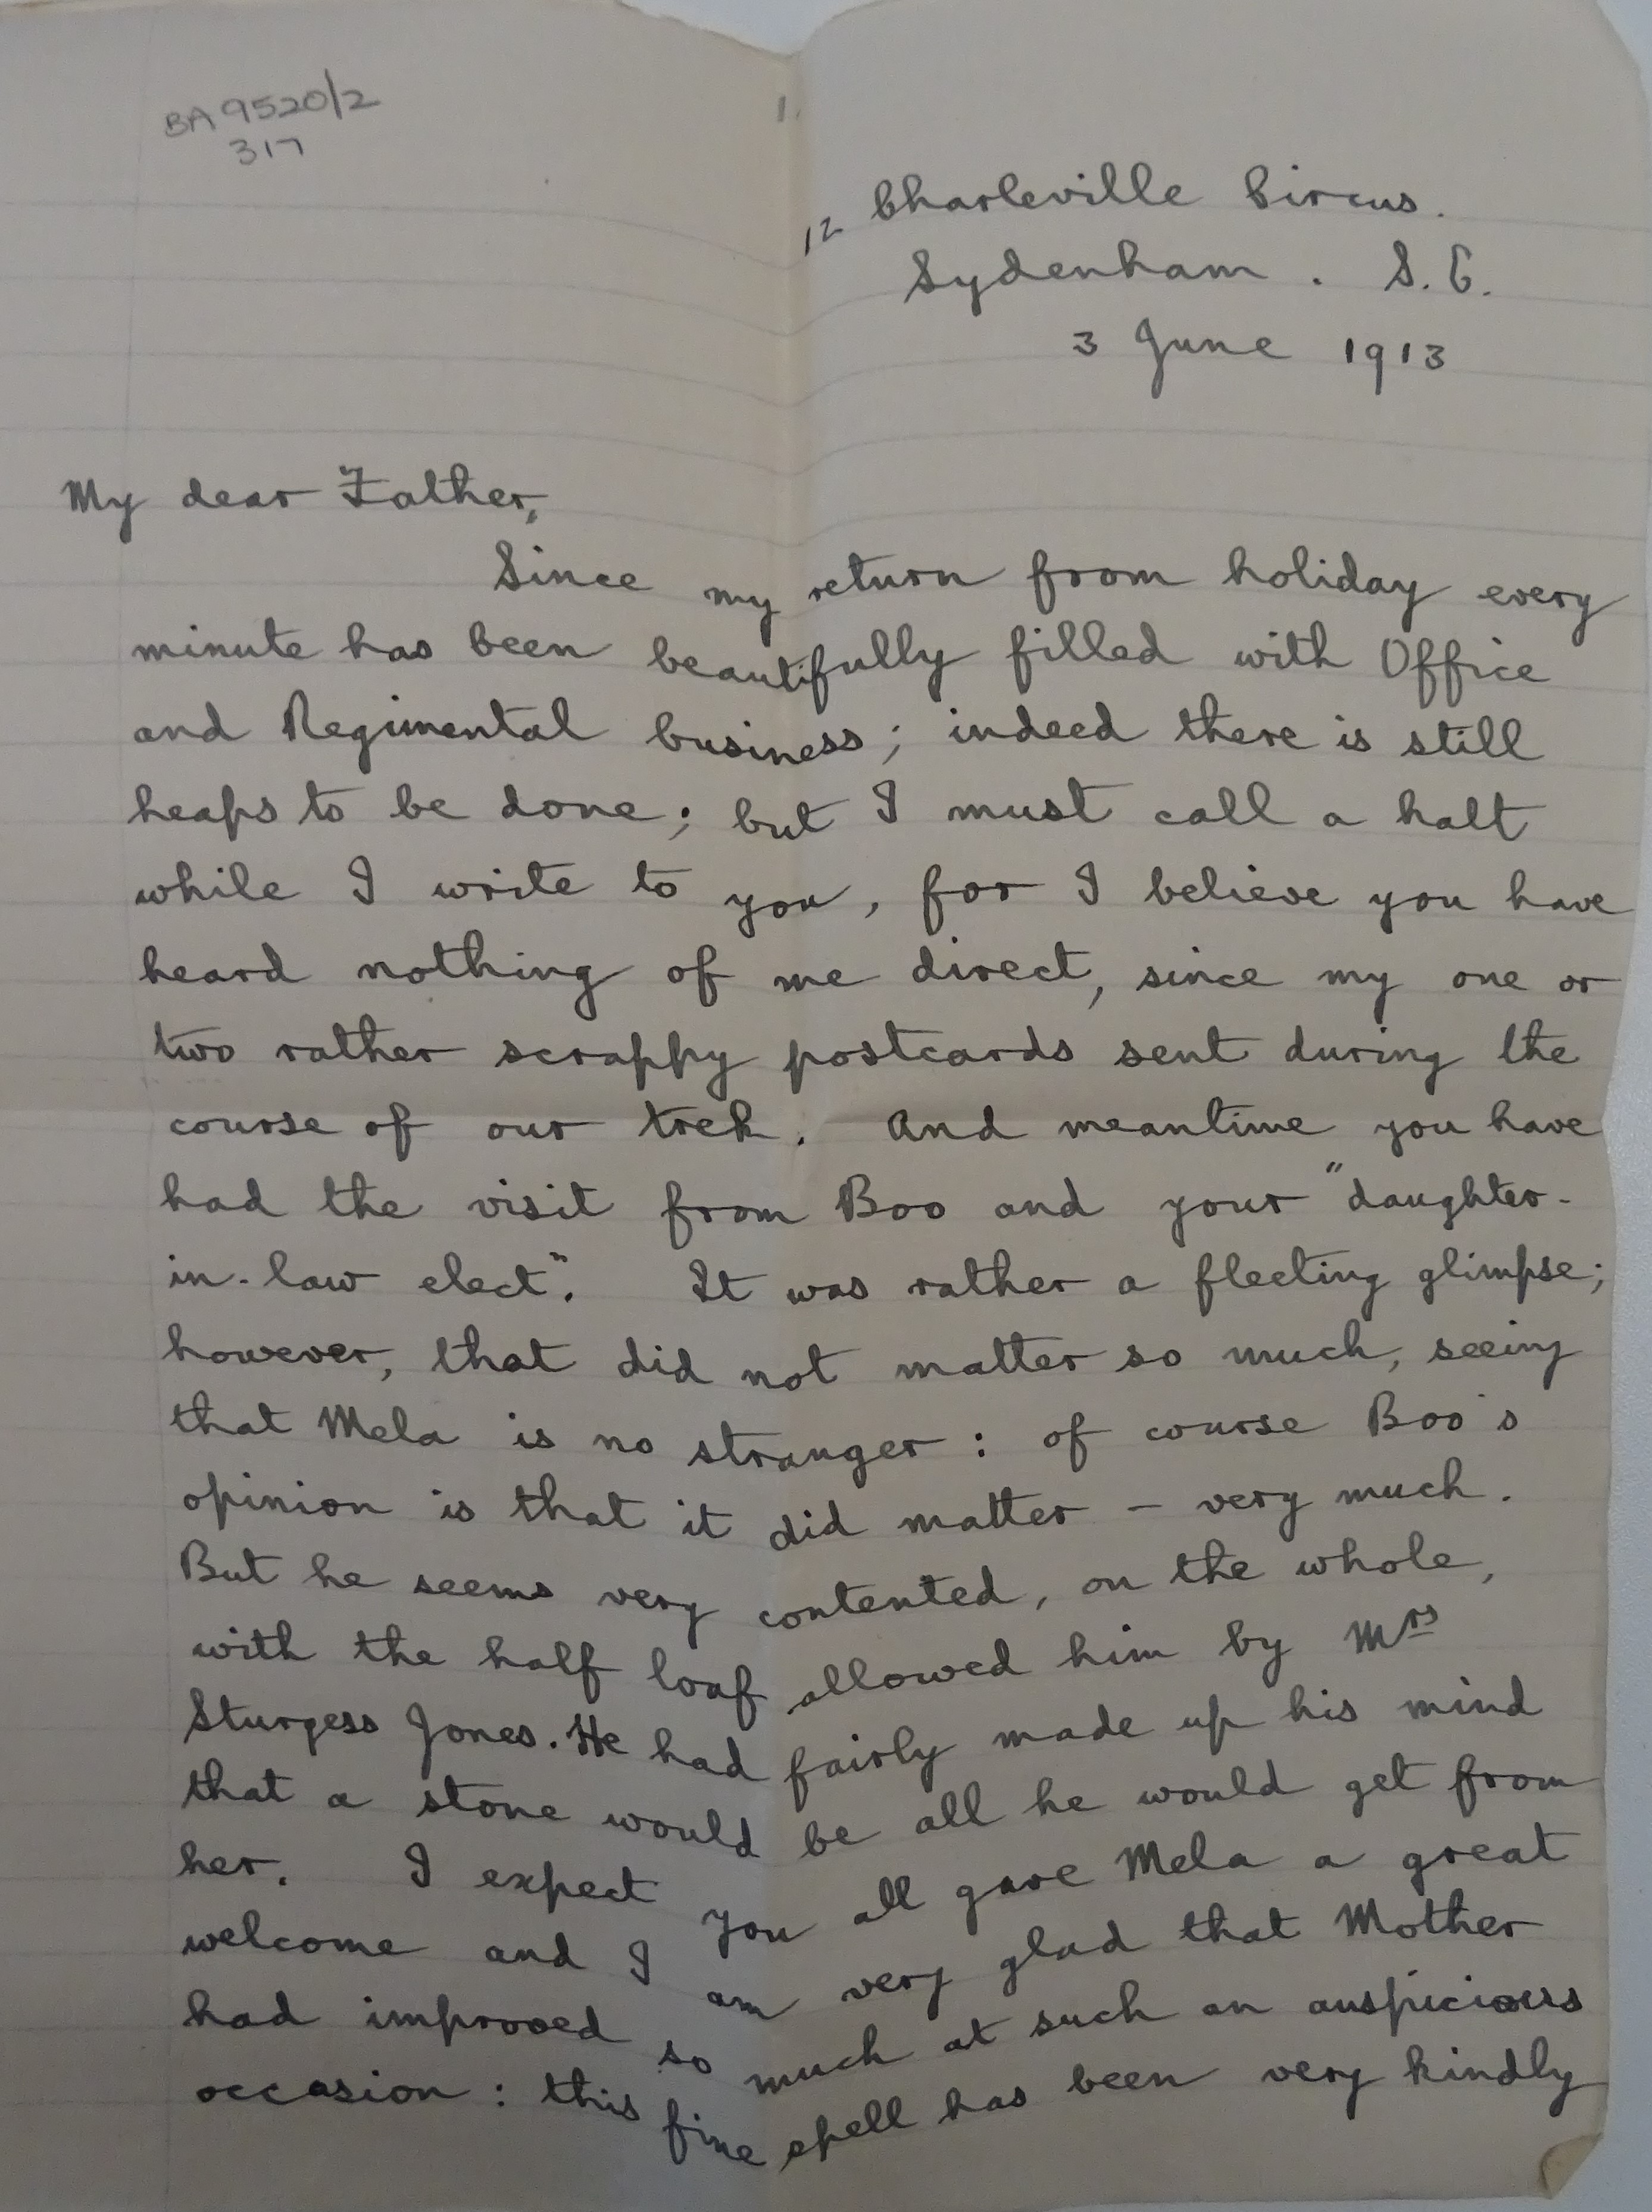 BA 9520/2
317
1.
12 Charleville Circus.
Sydenham. S.E.
3 June 1913
My dear Father,
Since my return from holiday every
minute has been beautifully filled with Office
and Regimental business; indeed there is still
heaps to be done; but I must call a halt
while I write to you, for I believe you have
heard nothing of me direct, since my one or
two rather scrappy postcards sent during the
course of our trek. And meantime you have
had the visit from Boo and your "daughter-
in-law elect". It was rather a fleeting glimpse;
however, that did not matter so much, seeing
that Mela is no stranger: of course Boo's
opinion is that it did matter – very much.
But he seems very contented, on the whole,
with the half loaf allowed him by Mrs
Sturgess Jones. He had fairly made up his mind
that a stone would be all he would get from
her. I expect you all gave Mela a great
welcome and I am very glad that Mother
had improved so much at such an auspicious
occasion: this fine spell has been very kindly